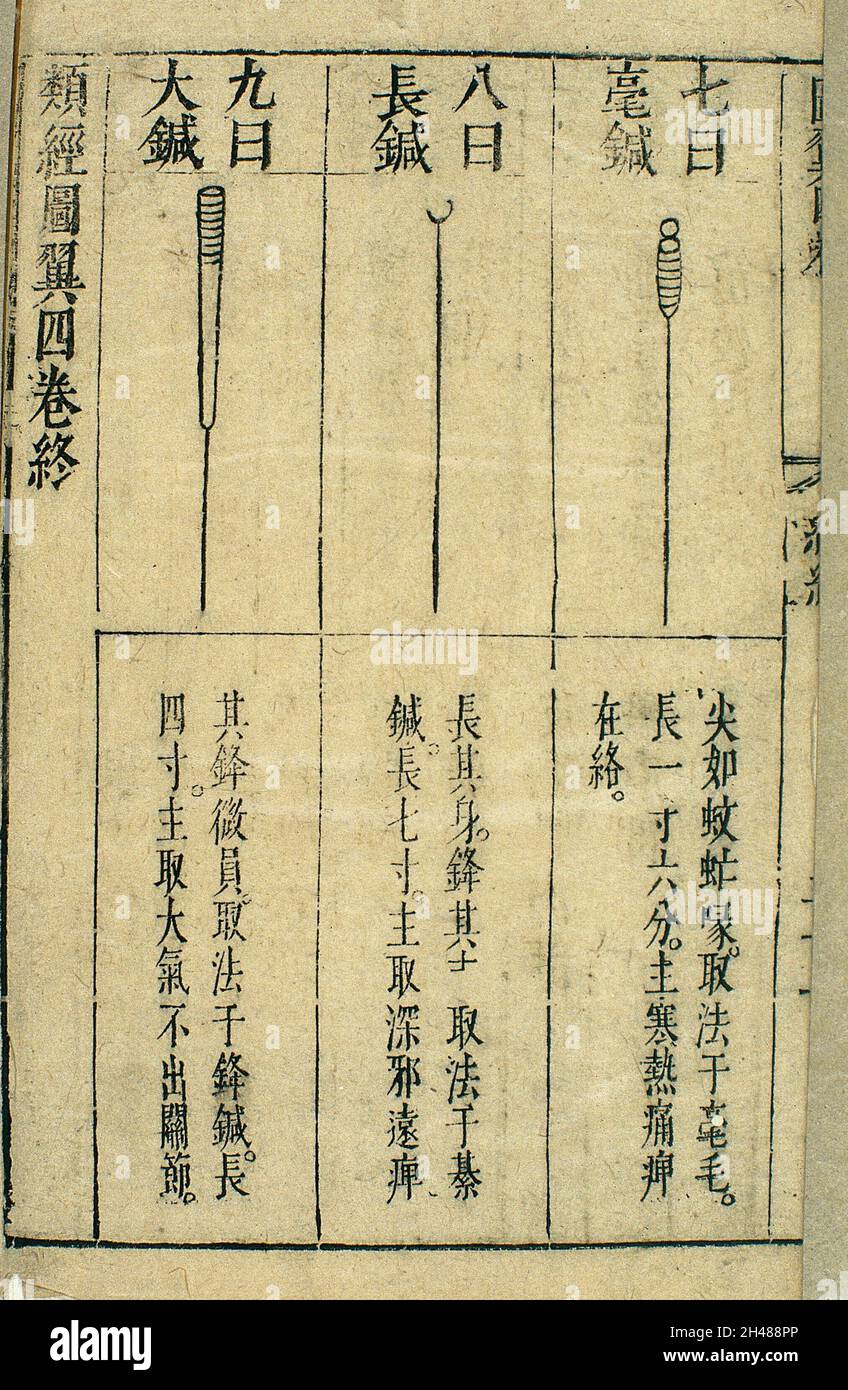 七曰
毫鍼
尖如蚊虻喙。取法于毫毛。
長一寸六分。主寒熱痛痺
在絡。
八曰
長鍼
長其身。鋒其 取法于綦
鍼。長七寸。主取深邪遠痺
九曰
大鍼
其鋒微員。取法于鋒鍼。長
四寸。主取大氣不出關節。
類經圖翼四卷終
alamy
Image ID: 2H488PP
www.alamy.com